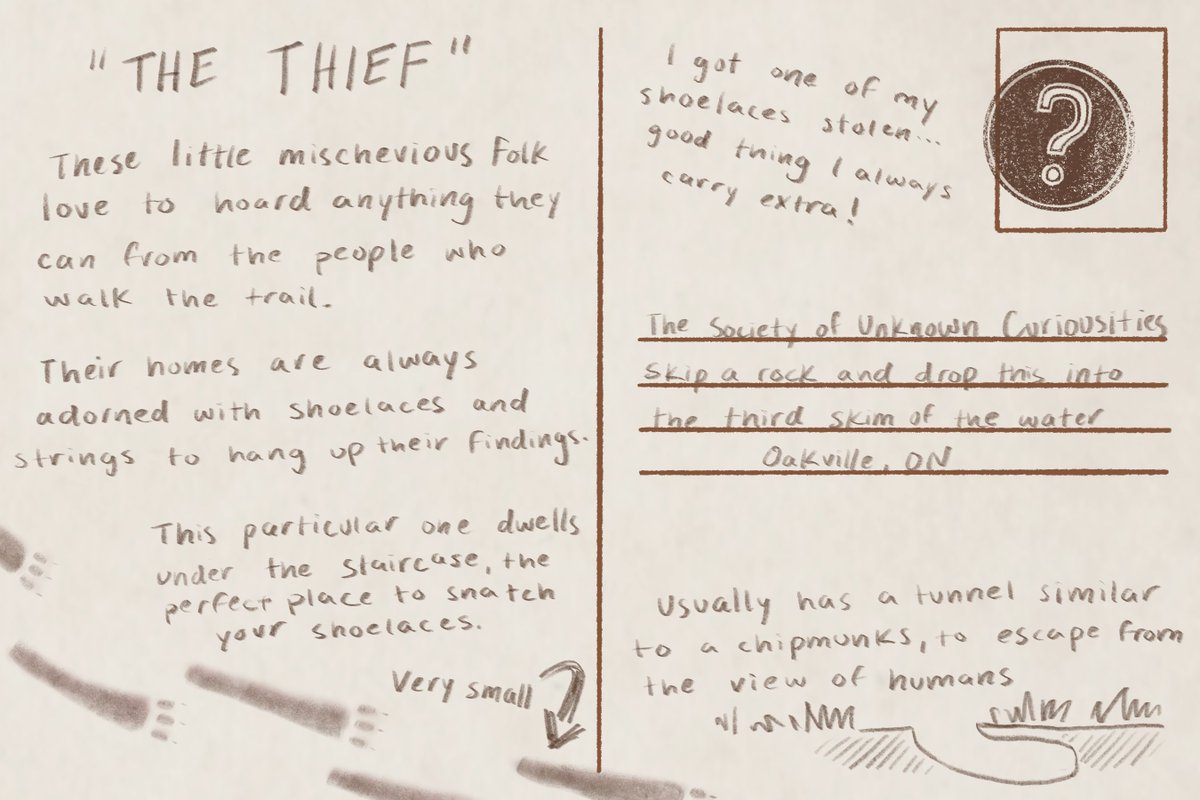 "THE THIEF"
These little mischevious folk
love to hoard anything they
can from the people who
walk the trail.
Their homes are always
adorned with shoelaces and
strings to hang up their findings.
This particular one dwells
under the staircase, the
perfect place to snatch
your shoelaces.
Very small
I got one of my
shoelaces stolen...
good thing I always
carry extra!
?
The Society of Unknown Curiousities
Skip a rock and drop this into
the third skim of the water
Oakville, ON
Usually has a tunnel similar
to a chipmunks, to escape from
the view of humans